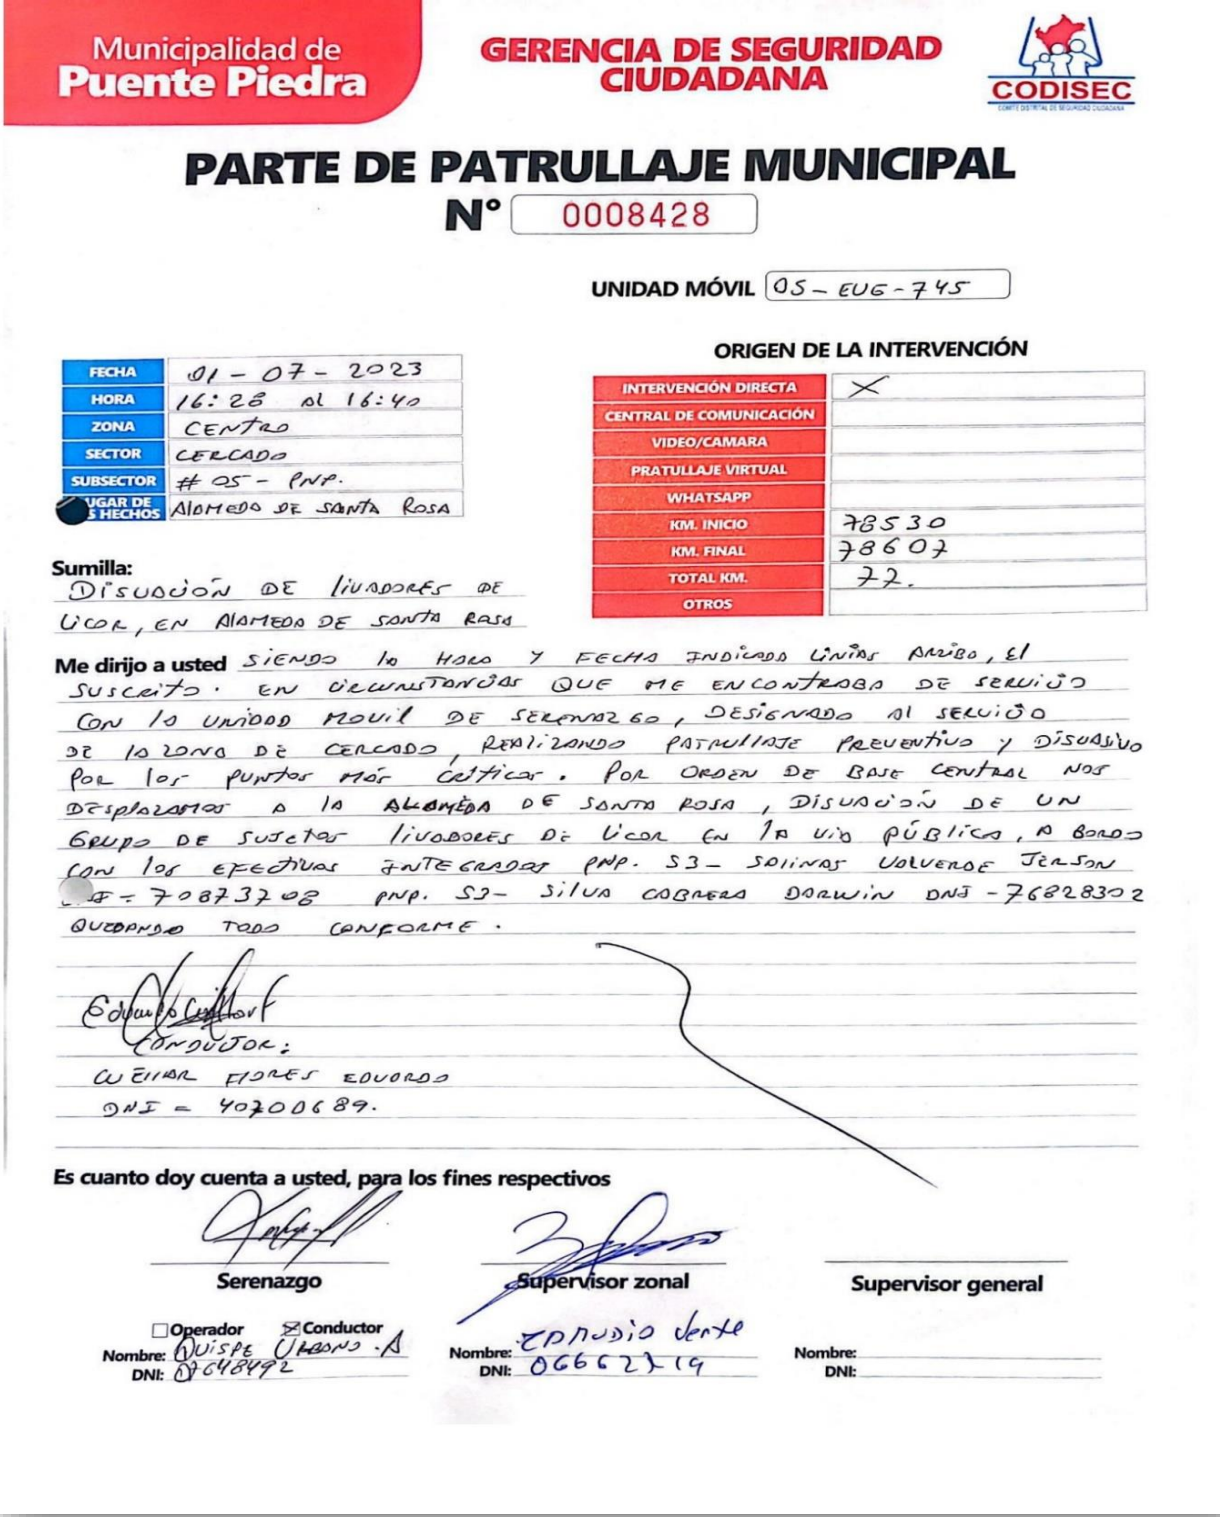 Municipalidad de
Puente Piedra
GERENCIA DE SEGURIDAD
CIUDADANA
CODISEC
COMITE DISTRITAL DE SEGURIDAD CIUDADANA
PARTE DE PATRULLAJE MUNICIPAL
N° 0008428
UNIDAD MÓVIL OS-EUG-745
ORIGEN DE LA INTERVENCIÓN
FECHA 01-07-2023
HORA 16:28 al 16:40
ZONA CENTRO
SECTOR CERCADO
SUBSECTOR # 05 - PNP.
UGAR DE
S HECHOS ALAMEDA DE SANTA ROSA
INTERVENCIÓN DIRECTA X
CENTRAL DE COMUNICACIÓN
VIDEO/CAMARA
PRATULLAJE VIRTUAL
WHATSAPP
KM. INICIO 78530
KM. FINAL 78607
TOTAL KM. 72.
OTROS
Sumilla:
DISUACIÓN DE LIVADORES DE
LICOR, EN ALAMEDA DE SANTA ROSA
Me dirijo a usted SIENDO la HORA Y FECHA INDICADA LINIAS ARRIBA, El
SUSCRITO. EN CIRCUNSTANCIAS QUE ME ENCONTRABA DE SERVICIO
CON la UNIDAD MOVIL DE SERENAZGO, DESIGNADO Al SERVICIO
DE la ZONA DE CERCADO, REALIZANDO PATRULLAJE PREVENTIVO y DISUASIVO
POR los PUNTOS MÁS CRITICOS. POR ORDEN DE BASE CENTRAL NOS
DESPLAZAMOS A la ALAMEDA DE SANTA ROSA, DISUACIÓN DE UN
GRUPO DE SUJETOS LIVADORES DE LICOR EN la VIA PÚBLICA, A BORDO
CON los EFECTIVOS INTEGRADOS PNP. S3- SALINAS VALVERDE JERSON
= 70873708 PNP. S3- SILVA CABRERA DARWIN DNI -76828302
QUEDANDO TODO CONFORME.
CONDUCTOR:
CUELLAR FLORES EDUARDO
DNI = 40700689.
Es cuanto doy cuenta a usted, para los fines respectivos
Serenazgo
Supervisor zonal
Supervisor general
Operador X Conductor
Nombre: QUISPE URBANO. A
DNI: 07648492
Nombre: ZAMUDIO
DNI:
Nombre:
DNI: